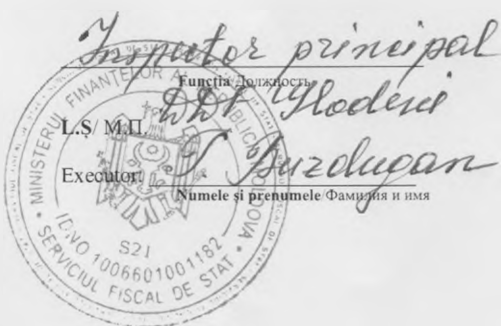 Inspector principal
Funcția/Должность
DDF Hodină
L.Ș/ М.П.
Executor:
S Burdugan
Numele și prenumele/Фамилия и имя
MINISTERUL FINANȚELOR AL REPUBLICII MOLDOVA
SERVICIUL FISCAL DE STAT
IDNO 1006601001182
S21